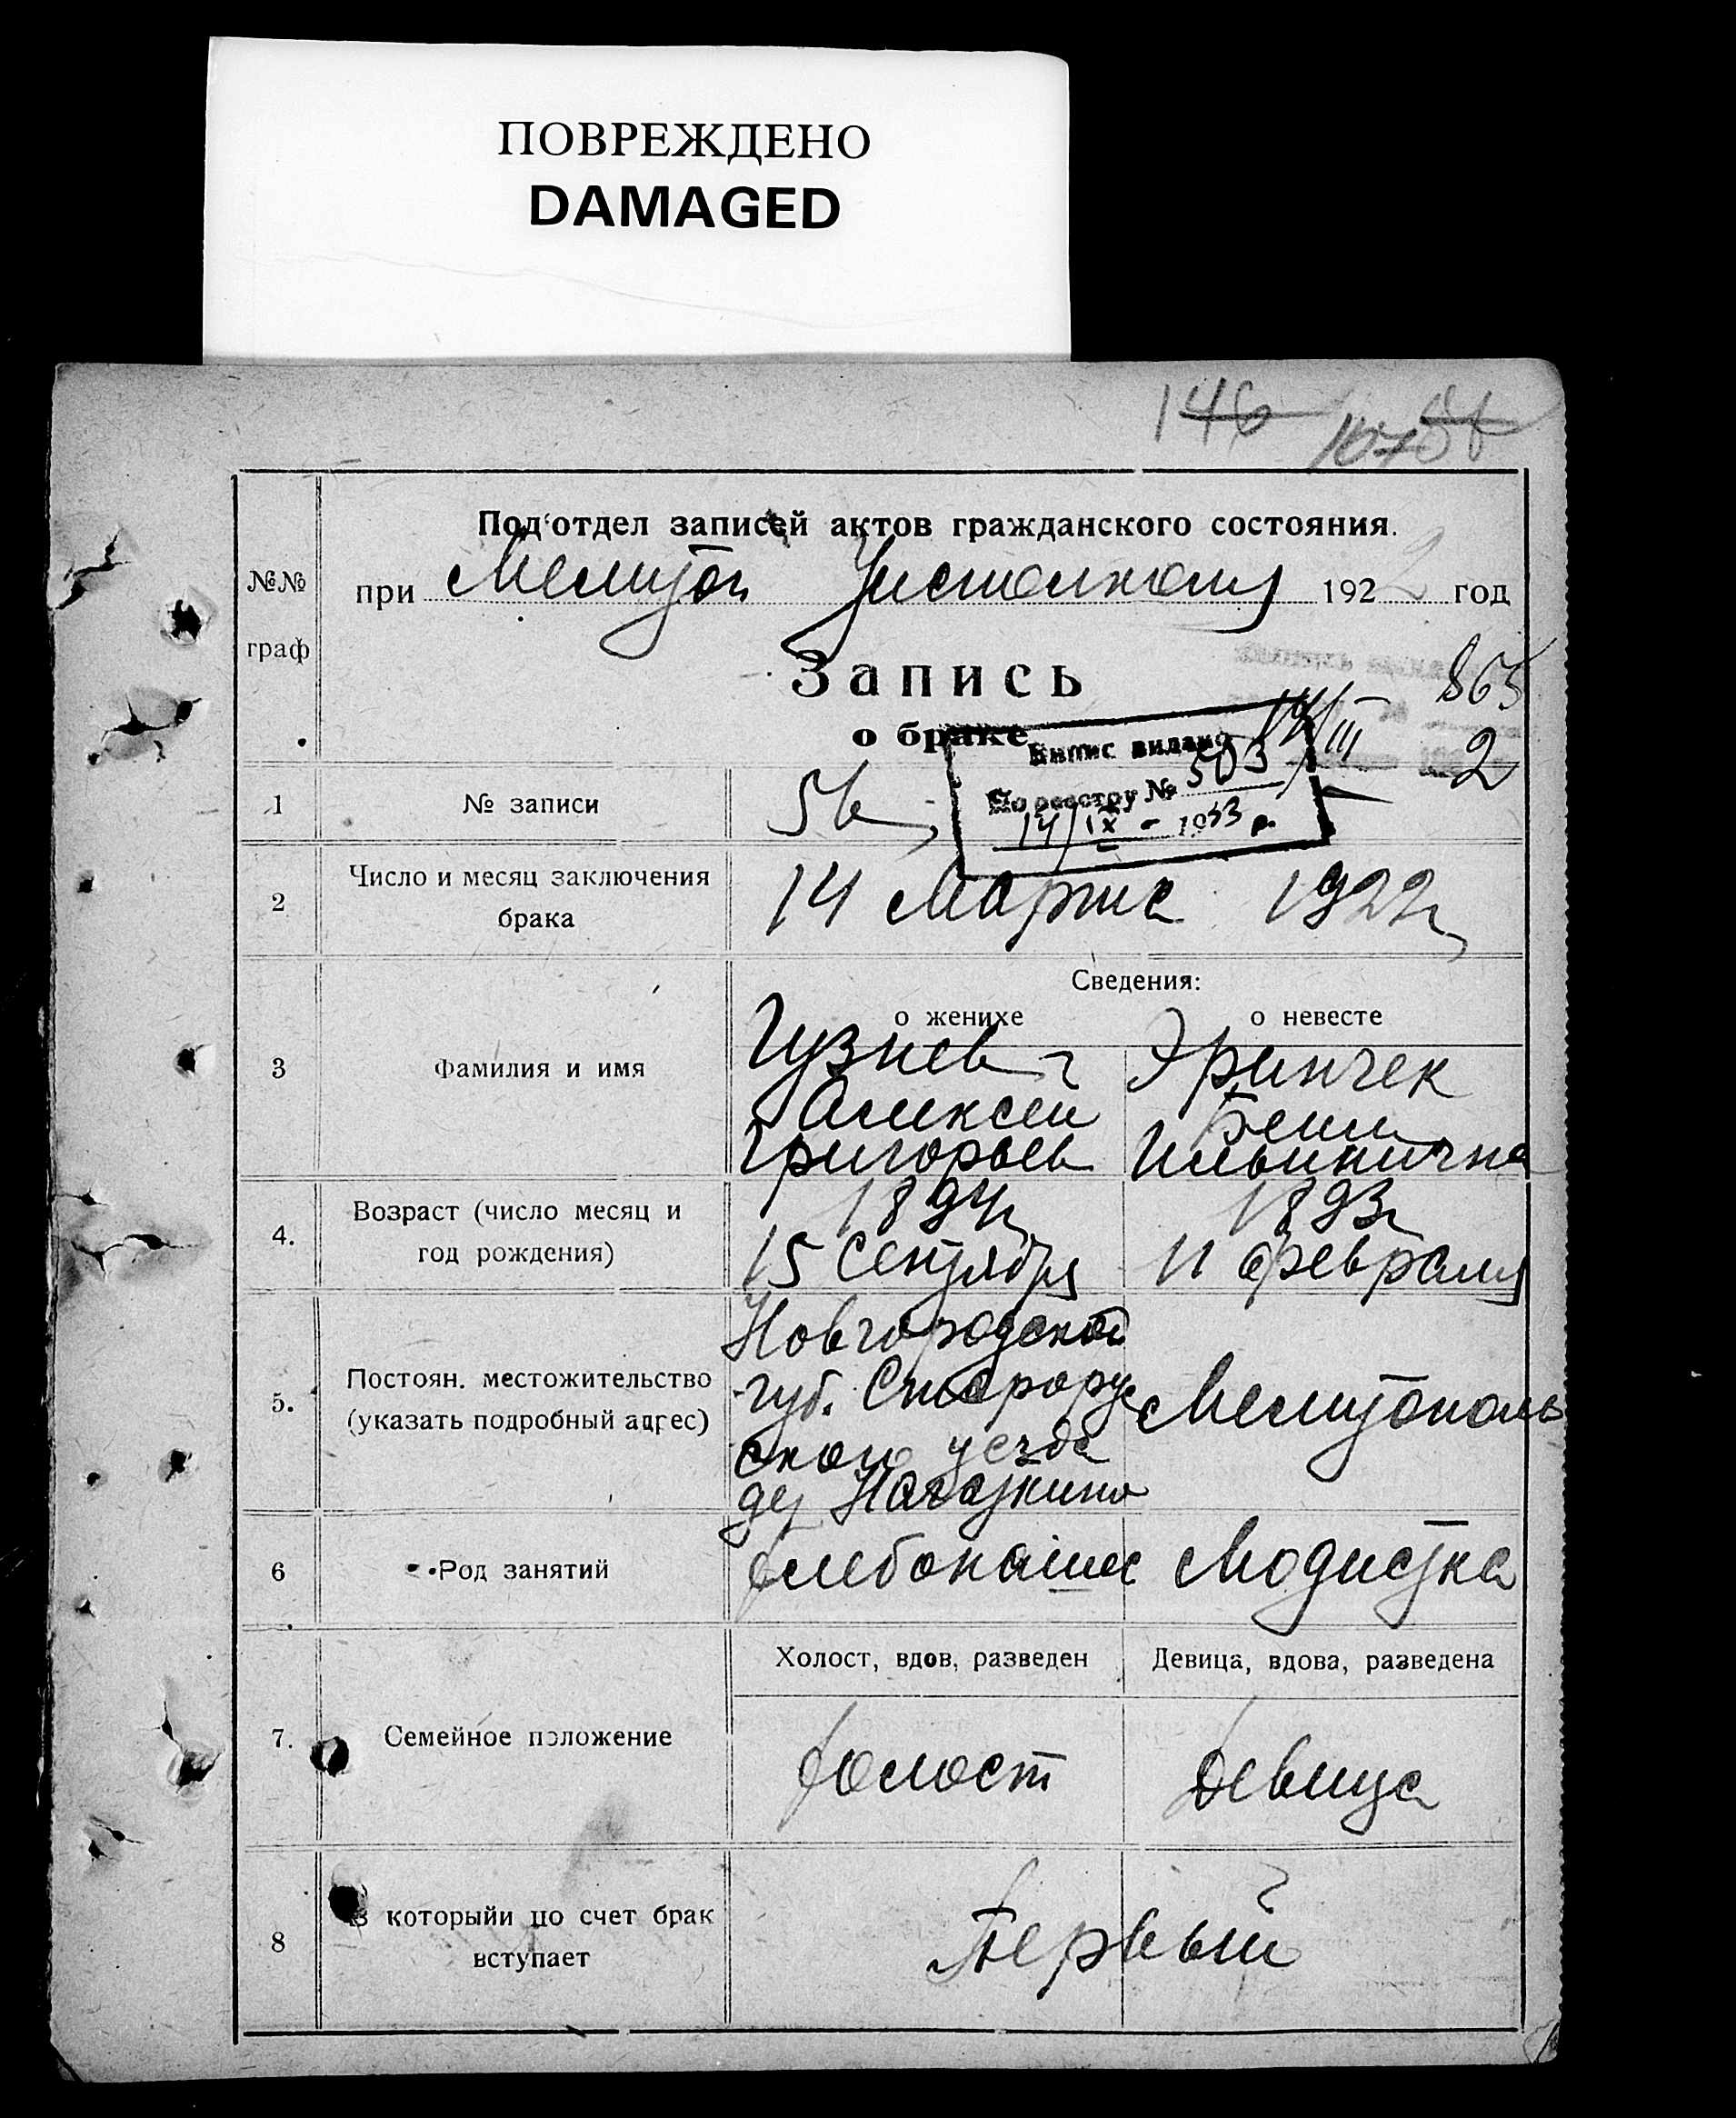 ПОВРЕЖДЕНО
DAMAGED
146
Под'отдел записей актов гражданского состояния.
№№
граф
при Мелитоп. Уисполкома 1922 год
Запись
о браке
865
2
14/III
Выпис видано
По реестру № 503
14/IX - 1933 р.
1 № записи 56
2 Число и месяц заключения
брака
14 Марта 1922 г.
Сведения:
о женихе о невесте
3 Фамилия и имя
Гузиев Эринчек
Алексей
Григорьев Ильинична
4. Возраст (число месяц и
год рождения)
1894 г. 1893 г.
15 Сентября 11 февраля
5. Постоян. местожительство
(указать подробный адрес)
Новгородской
губ. Старорус
ского уезда
Мелитополь
6 Род занятий
хлебопашец Модистка
Холост, вдов, разведен Девица, вдова, разведена
7. Семейное положение
холост Девица
8 В которыйи по счет брак
вступает
Первый